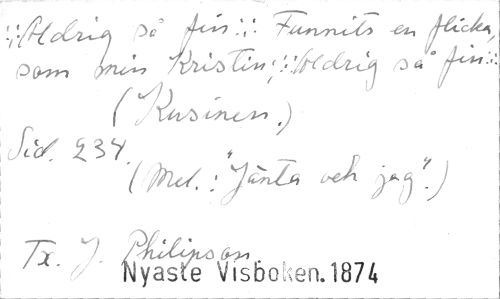 :;: Aldrig så fin :;: Funnits en flicka,
som min Kristin, :;: Aldrig så fin :;:
(Kusinen.)
Sid. 234.
(Mel.: "Jänta och jag".)
Tx. J. Philipson.
Nyaste Visboken. 1874